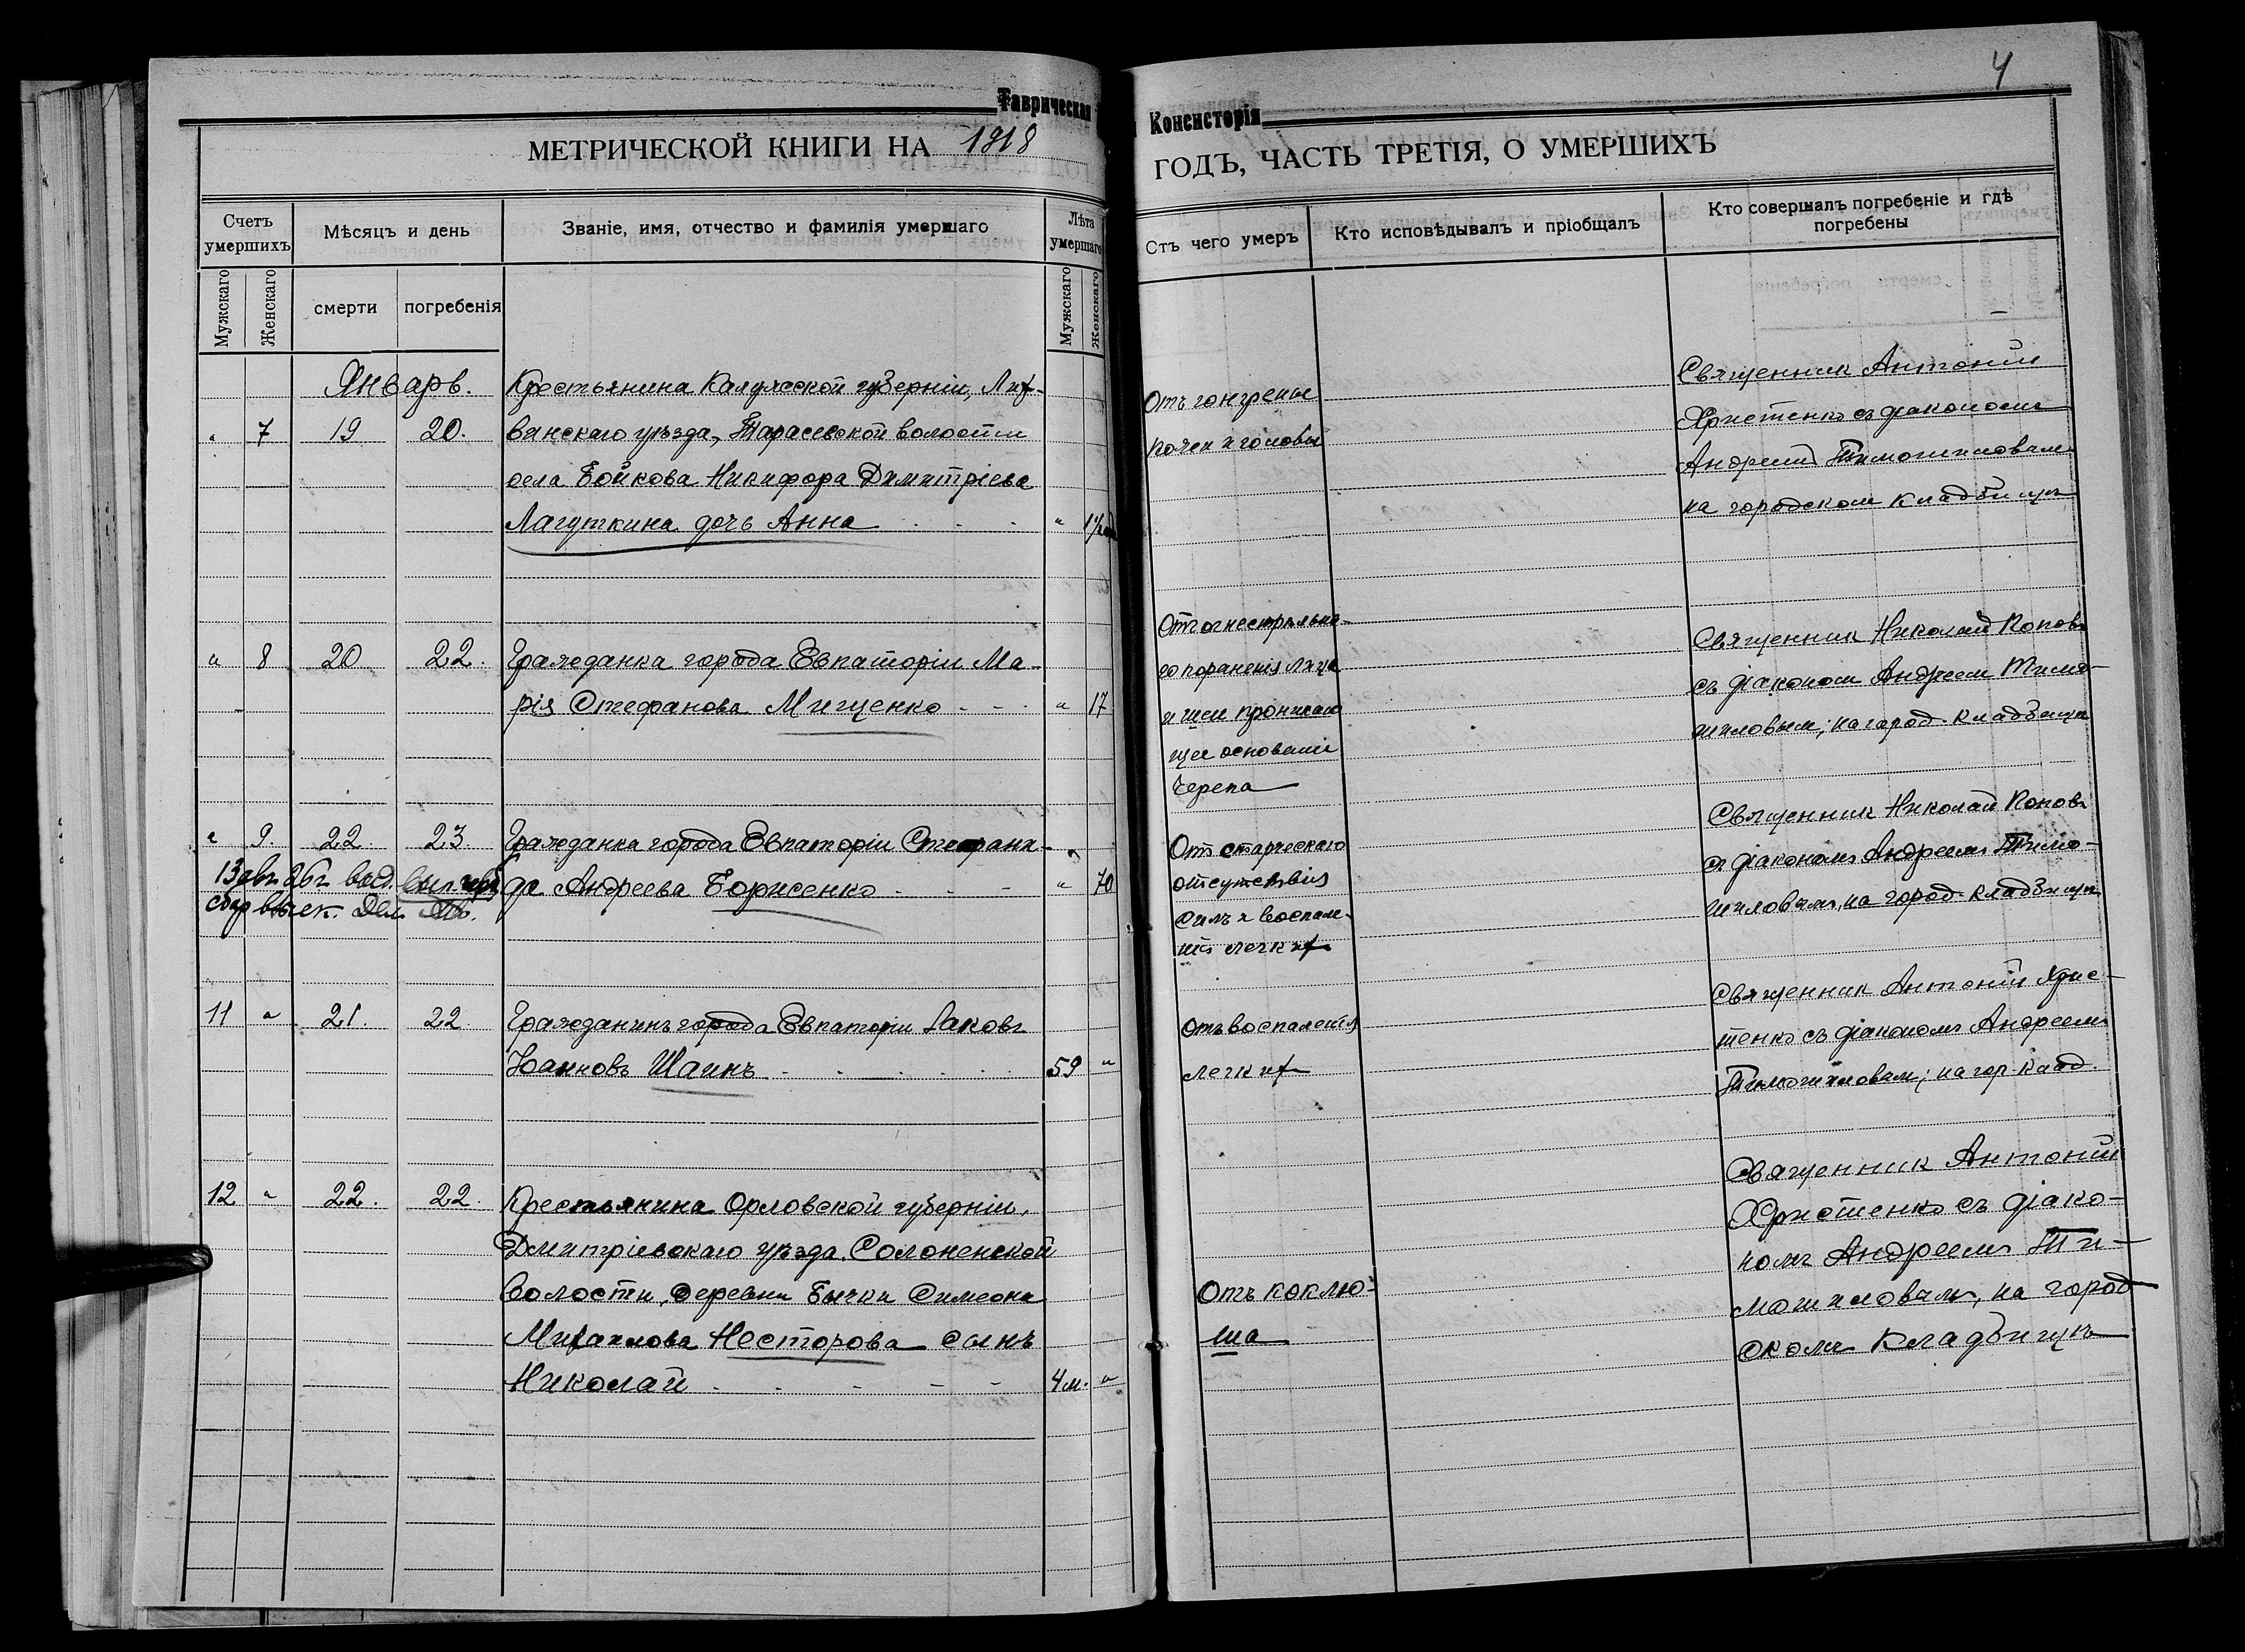 4
Таврическая Консисторія
МЕТРИЧЕСКОЙ КНИГИ НА 1918
ГОДЪ, ЧАСТЬ ТРЕТІЯ, О УМЕРШИХЪ
Счетъ умершихъ
Мѣсяцъ и день
Званіе, имя, отчество и фамилія умершаго
Лѣта умершаго
Стъ чего умеръ
Кто исповѣдывалъ и пріобщалъ
Кто совершалъ погребеніе и гдѣ
погребены
Мужскаго
Женскаго
смерти
погребенія
Мужскаго
Женскаго
Январь.
Крестьянина Калужской губерніи, Лих-
" 7 19 20. винскаго уѣзда, Тарасевской волости
села Бойкова Никифора Димитріева
Лагуткина дочь Анна " 1½
Отъ гангрены
почек и головы
Священник Антоній
Христенко съ діакономъ
Андреемъ Тимошиловымъ
на городском кладбищѣ
" 8 20 22. Гражданка города Евпаторіи Ма-
рія Стефанова Мищенко " 17
От огнестрѣльна-
го пораненія лица
и шеи проникаю
щее основаніе
черепа
Священник Николай Попов
съ діаконом Андреем Тимо-
шиловым; на город. кладбищѣ
" 9. 22. 23. Гражданка города Евпаторіи Степани-
да Андреева Борисенко " 70
13 авг. 26 г.
От старческаго
отсутствія
силъ и воспале-
нія легких
Священник Николай Поповъ
съ діакономъ Андреемъ Тимо-
шиловымъ, на город. кладбищѣ
11 " 21. 22. Гражданинъ города Евпаторіи Іаковъ
Іоанновъ Шаинъ 59 "
Отъ воспаленія
легких
Священник Антоній Хрис-
тенко съ діакономъ Андреемъ
Тимошиловым; на гор. клад.
12 " 22. 22. Крестьянина Орловской губерніи,
Дмитріевскаго уѣзда, Солоненской
волости, деревни Бычки Симеона
Михаилова Несторова сынъ
Николай 4 м. "
Отъ коклю-
ша
Священник Антоній
Христенко съ діако-
номъ Андреемъ Ти-
мошиловымъ, на город
скомъ кладбищѣ